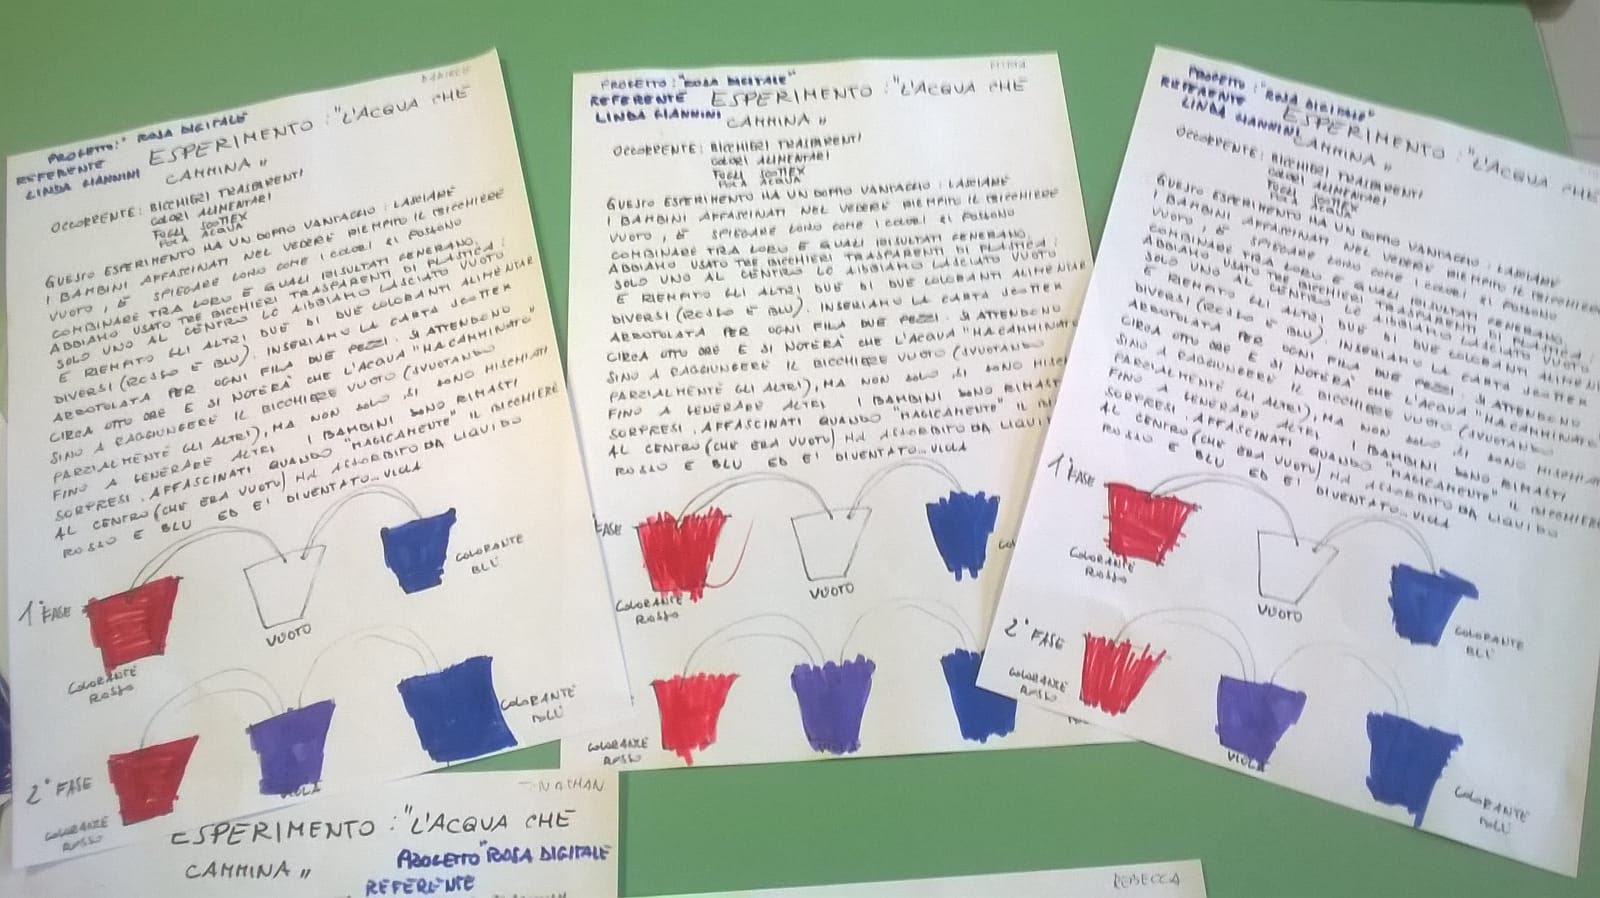 PROGETTO: "ROSA DIGITALE
REFERENTE
LINDA GIANNINI
ESPERIMENTO: "L'ACQUA CHE
CAMMINA"
OCCORRENTE: BICCHIERI TRASPARENTI
COLORI ALIMENTARI
FOGLI SCOTTEX
POCA ACQUA
QUESTO ESPERIMENTO HA UN DOPPIO VANTAGGIO: LASCIARE
I BAMBINI AFFASCINATI NEL VEDERE RIEMPITO IL BICCHIERE
VUOTO, È SPIEGARE LORO COME I COLORI SI POSSONO
COMBINARE TRA LORO E QUALI RISULTATI GENERANO.
ABBIAMO USATO TRE BICCHIERI TRASPARENTI DI PLASTICA:
SOLO UNO AL CENTRO LO ABBIAMO LASCIATO VUOTO
E RIEMPITO GLI ALTRI DUE DI DUE COLORANTI ALIMENTARI
DIVERSI (ROSSO E BLU). INSERIAMO LA CARTA SCOTTEX
ARROTOLATA PER OGNI FILA DUE PEZZI. SI ATTENDONO
CIRCA OTTO ORE E SI NOTERÀ CHE L'ACQUA "HA CAMMINATO"
SINO A RAGGIUNGERE IL BICCHIERE VUOTO (SVUOTANDO
PARZIALMENTE GLI ALTRI), MA NON SOLO SI SONO MISCHIATI
FINO A GENERARE ALTRI I BAMBINI SONO RIMASTI
SORPRESI. AFFASCINATI QUANDO "MAGICAMENTE" IL BICCHIERE
AL CENTRO (CHE ERA VUOTO) HA ASSORBITO DA LIQUIDO
ROSSO E BLU ED E' DIVENTATO... VIOLA
1° FASE
COLORANTE
ROSSO
VUOTO
COLORANTE
BLÙ
2° FASE
COLORANTE
ROSSO
VIOLA
COLORANTE
BLÙ
PROGETTO: "ROSA DIGITALE"
REFERENTE
LINDA GIANNINI
ESPERIMENTO: "L'ACQUA CHE
CAMMINA"
OCCORRENTE: BICCHIERI TRASPARENTI
COLORI ALIMENTARI
FOGLI SCOTTEX
POCA ACQUA
QUESTO ESPERIMENTO HA UN DOPPIO VANTAGGIO: LASCIARE
I BAMBINI AFFASCINATI NEL VEDERE RIEMPITO IL BICCHIERE
VUOTO, È SPIEGARE LORO COME I COLORI SI POSSONO
COMBINARE TRA LORO E QUALI RISULTATI GENERANO.
ABBIAMO USATO TRE BICCHIERI TRASPARENTI DI PLASTICA:
SOLO UNO AL CENTRO LO ABBIAMO LASCIATO VUOTO
E RIEMPITO GLI ALTRI DUE DI DUE COLORANTI ALIMENTAR
DIVERSI (ROSSO E BLU). INSERIAMO LA CARTA SCOTTEX
ARROTOLATA PER OGNI FILA DUE PEZZI. SI ATTENDONO
CIRCA OTTO ORE E SI NOTERÀ CHE L'ACQUA "HA CAMMINATO"
SINO A RAGGIUNGERE IL BICCHIERE VUOTO (SVUOTANDO
PARZIALMENTE GLI ALTRI), MA NON SOLO SI SONO MISCH
FINO A GENERARE ALTRI I BAMBINI SONO RIMAST
SORPRESI. AFFASCINATI QUANDO "MAGICAMENTE" IL BI
AL CENTRO (CHE ERA VUOTO) HA ASSORBITO DA LIQUI
ROSSO E BLU ED E' DIVENTATO... VIOLA
FASE
COLORANTE
ROSSO
VUOTO
CO
COLORANTE
ROSSO
VIOLA
PROGETTO: "ROSA DIGITALE"
REFERENTE
LINDA GIANNINI
ESPERIMENTO: "L'ACQUA CHE
CAMMINA"
OCCORRENTE: BICCHIERI TRASPARENTI
COLORI ALIMENTARI
FOGLI SCOTTEX
POCA ACQUA
QUESTO ESPERIMENTO HA UN DOPPIO VANTAGGIO: LASCIARE
I BAMBINI AFFASCINATI NEL VEDERE RIEMPITO IL BICCHIERE
VUOTO, È SPIEGARE LORO COME I COLORI SI POSSONO
COMBINARE TRA LORO E QUALI RISULTATI GENERANO.
ABBIAMO USATO TRE BICCHIERI TRASPARENTI DI PLASTICA:
SOLO UNO AL CENTRO LO ABBIAMO LASCIATO VUOTO
E RIEMPITO GLI ALTRI DUE DI DUE COLORANTI ALIMENTA
DIVERSI (ROSSO E BLU). INSERIAMO LA CARTA SCOTTEX
ARROTOLATA PER OGNI FILA DUE PEZZI. SI ATTENDONO
CIRCA OTTO ORE E SI NOTERÀ CHE L'ACQUA "HA CAMMINATO
SINO A RAGGIUNGERE IL BICCHIERE VUOTO (SVUOTANDO
PARZIALMENTE GLI ALTRI), MA NON SOLO SI SONO MISCHIATI
FINO A GENERARE ALTRI I BAMBINI SONO RIMASTI
SORPRESI. AFFASCINATI QUANDO "MAGICAMENTE" IL BICCHIERE
AL CENTRO (CHE ERA VUOTO) HA ASSORBITO DA LIQUIDO
ROSSO E BLU ED E' DIVENTATO... VIOLA
1° FASE
COLORANTE
ROSSO
VUOTO
COLORANTE
BLÙ
2° FASE
COLORANTE
ROSSO
VIOLA
COLORANTE
BLÙ
NATHAN
ESPERIMENTO: "L'ACQUA CHE
CAMMINA"
PROGETTO "ROSA DIGITALE
REFERENTE
REBECCA